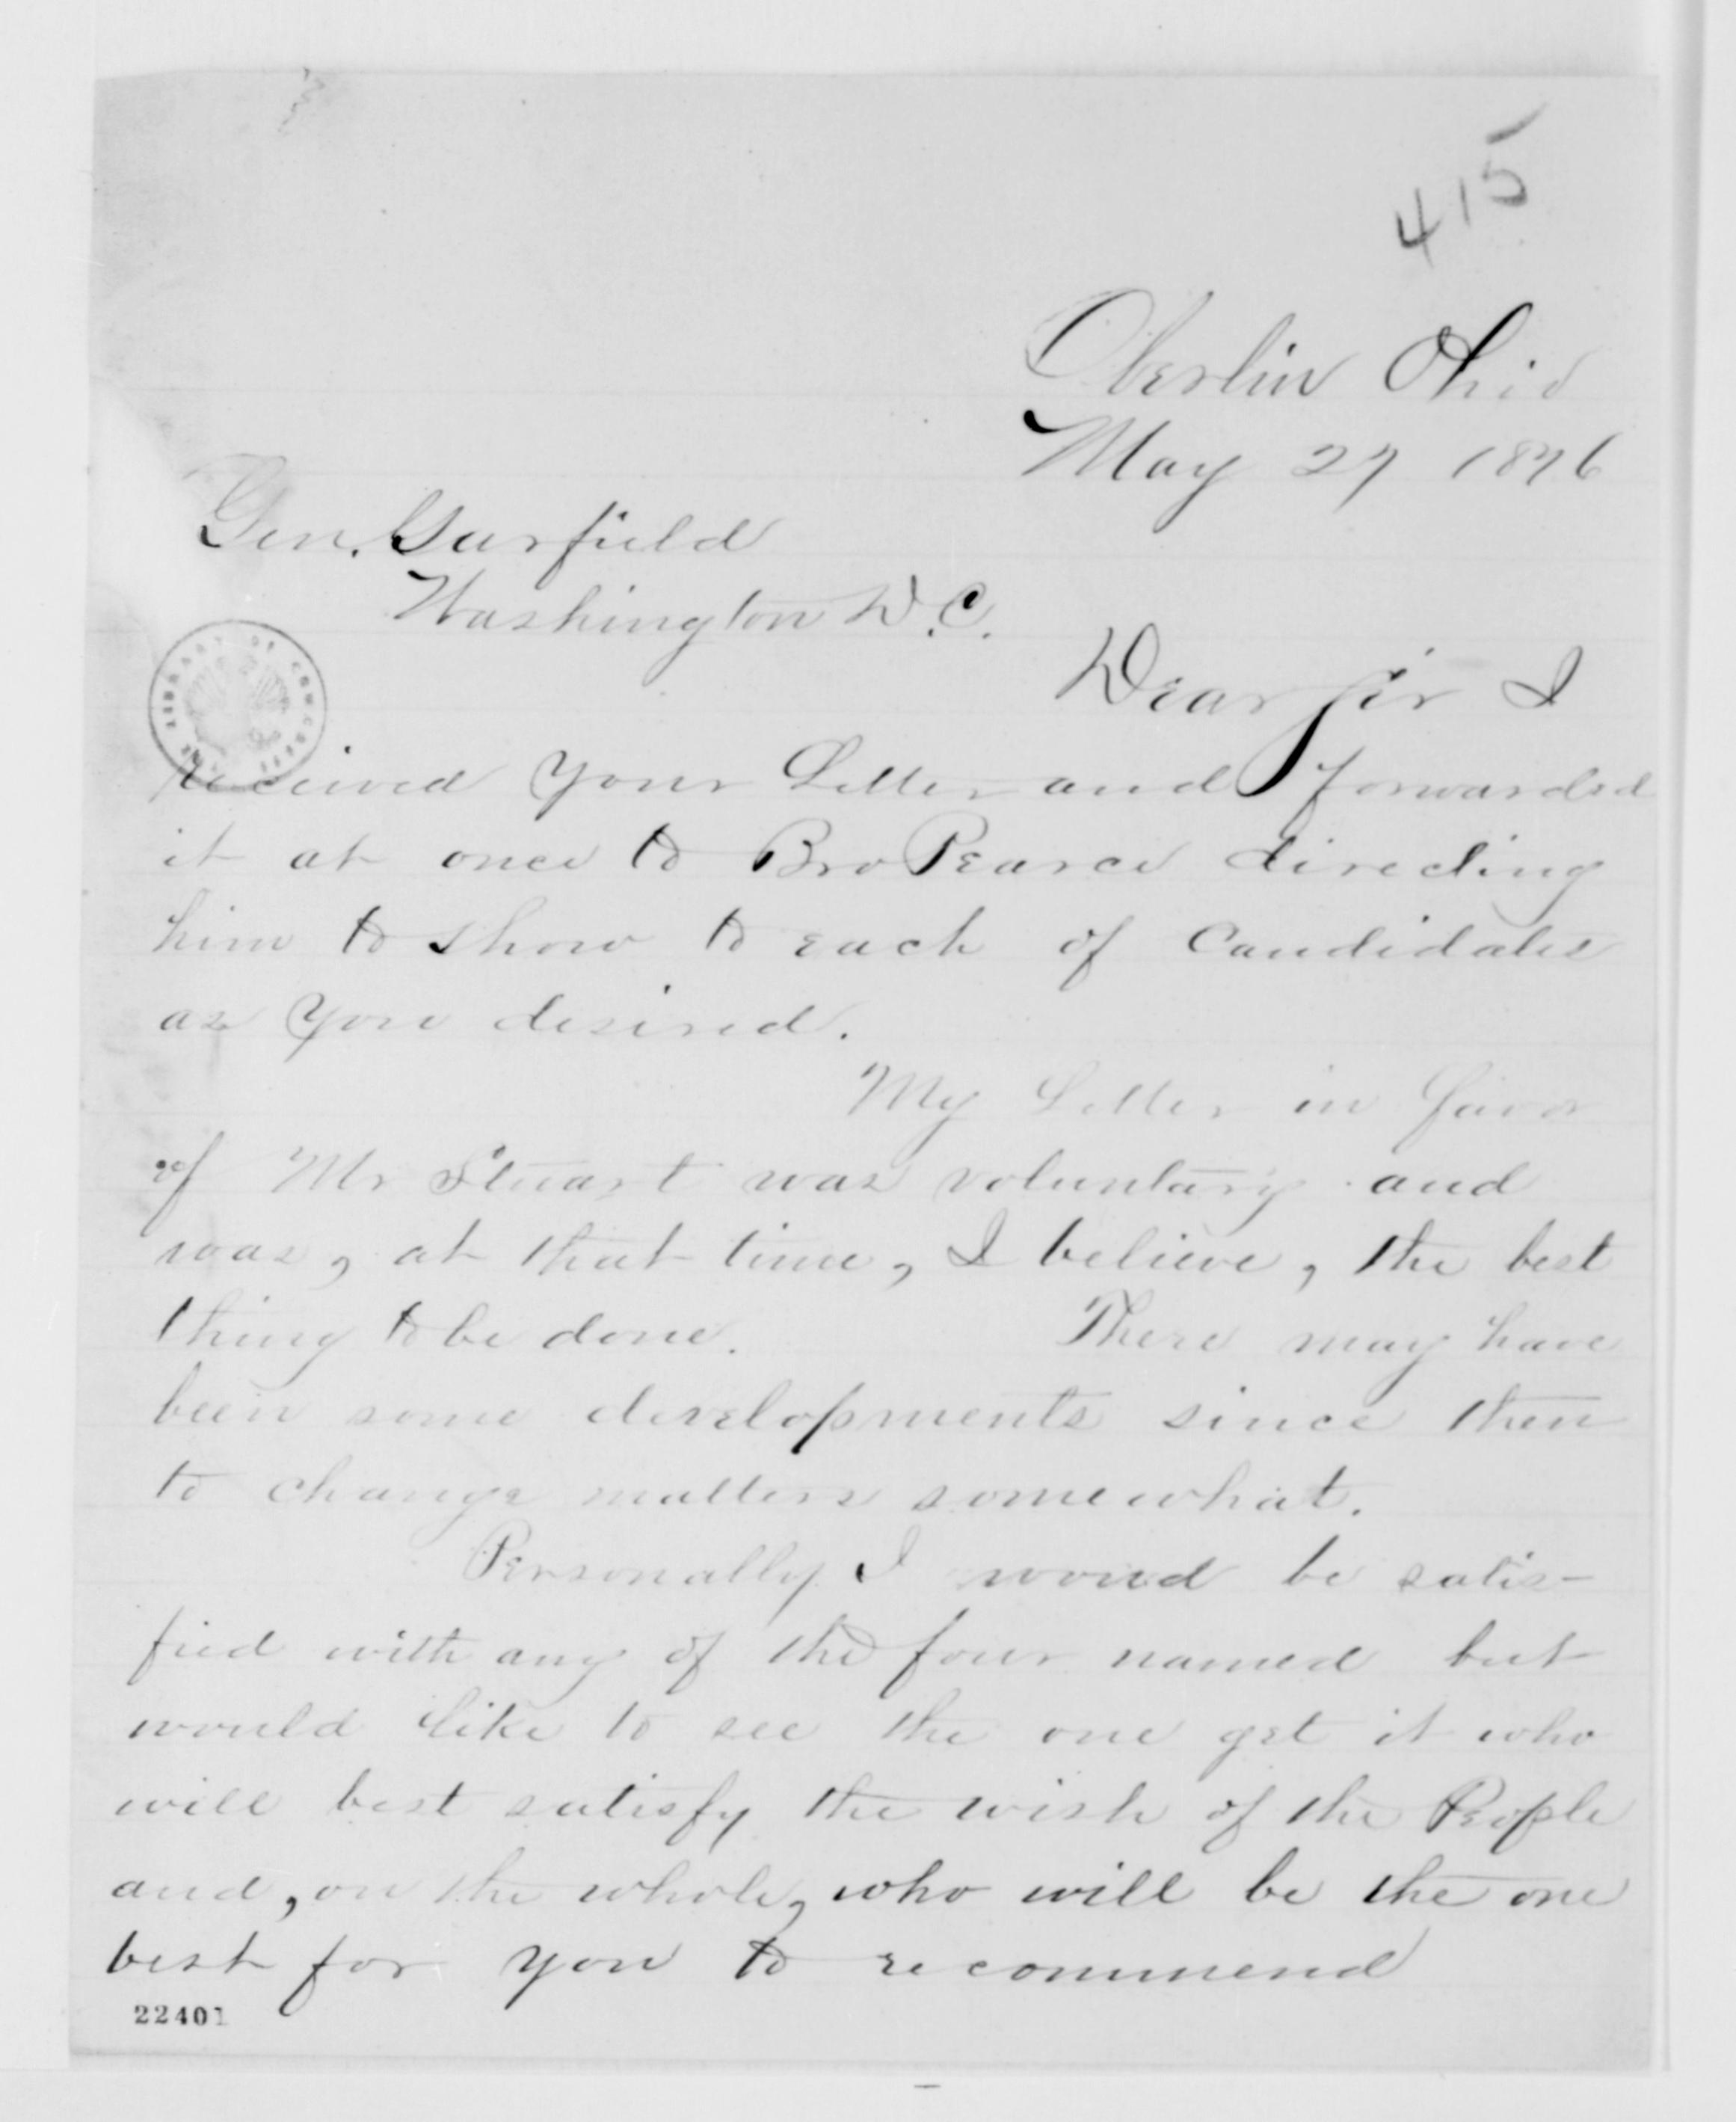 415
Oberlin Ohio
May 27 1876
Gen. Garfield
Washington D.C.
Dear Sir I
received your Letter and forwarded
it at once to Bro Pearce directing
him to show to each of Candidates
as you desired.
My Letter in favor
of Mr Stuart was voluntary and
was, at that time, I believe, the best
thing to be done. There may have
been some developments since then
to change matters somewhat.
Personally I would be satis-
fied with any of the four named but
would like to see the one get it who
will best satisfy the wish of the People
and, on the whole, who will be the one
best for you to recommend
22401